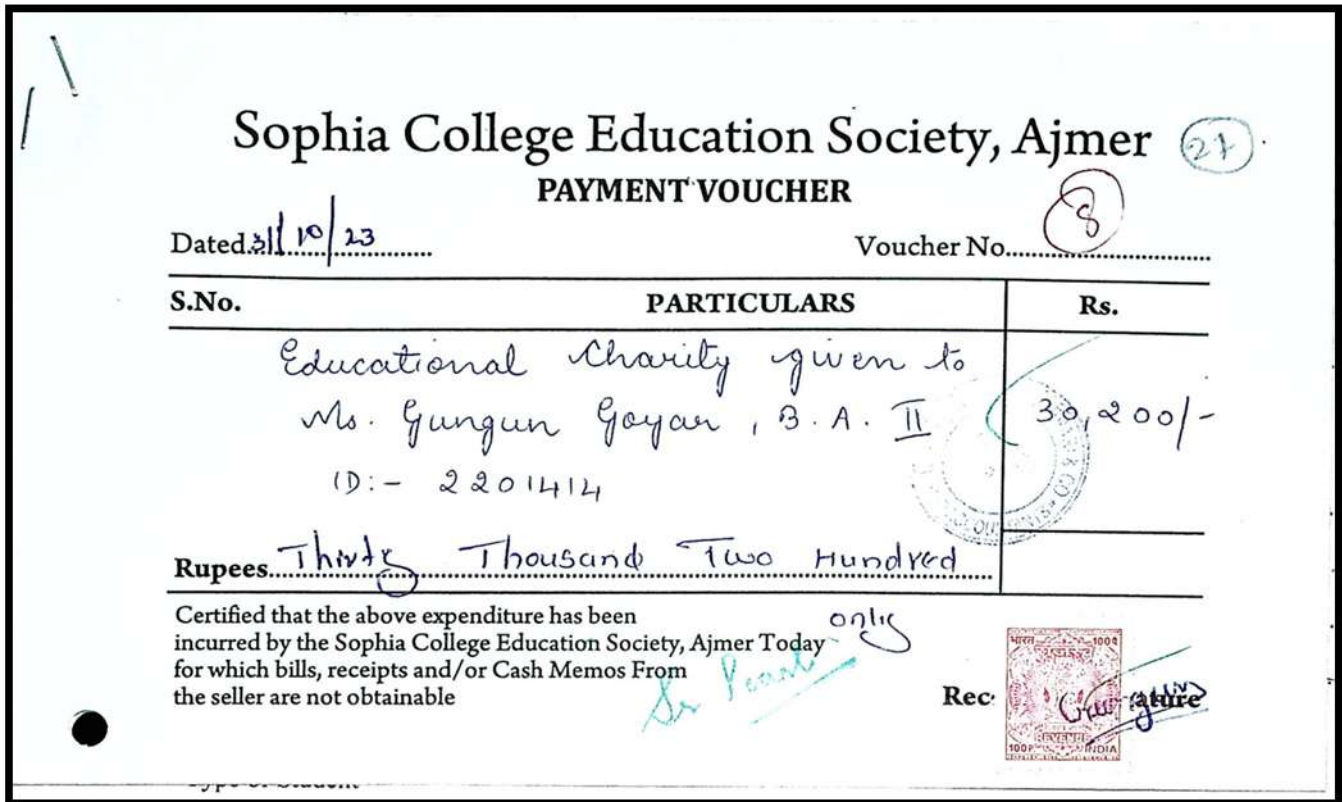 Sophia College Education Society, Ajmer 27
PAYMENT VOUCHER
Dated 31/10/23 Voucher No. 8
S.No. PARTICULARS Rs.
Educational Charity given to
Ms. Gungun Goyar, B.A. II 30,200/-
ID:- 2201414
Rupees Thirty Thousand Two Hundred
only
Certified that the above expenditure has been
incurred by the Sophia College Education Society, Ajmer Today
for which bills, receipts and/or Cash Memos From
the seller are not obtainable
Rec
ature
भारत 100
REVENUE
100P INDIA
& CO